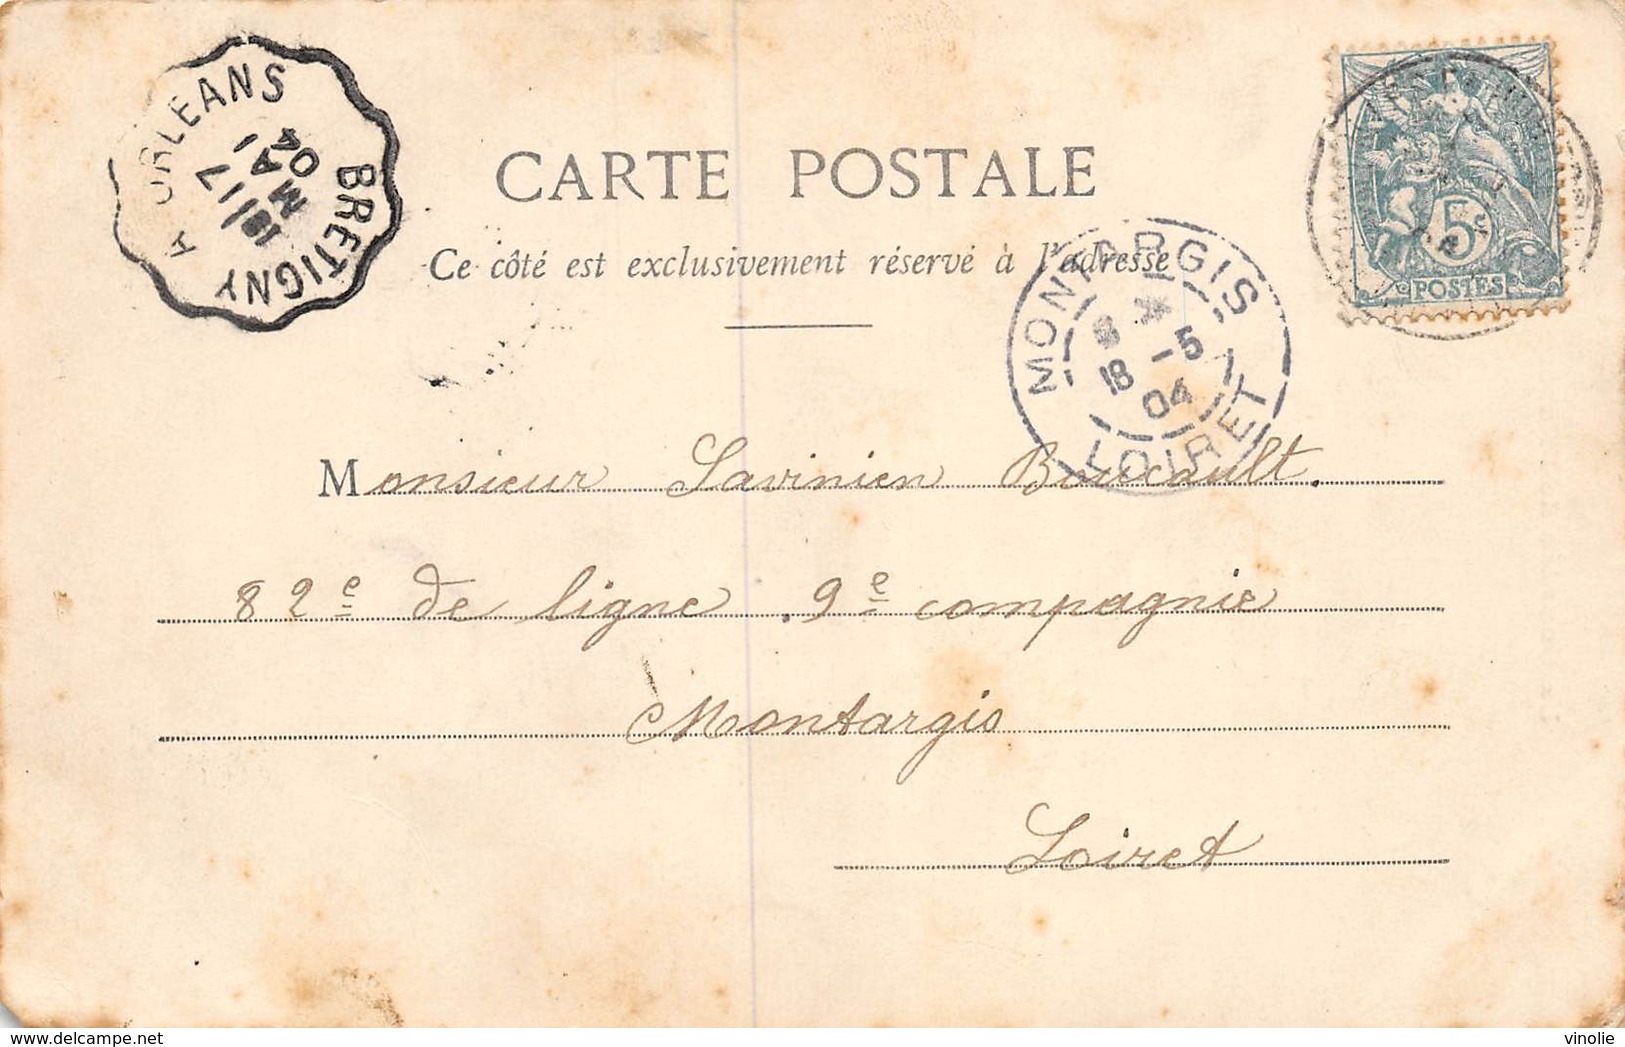 BRETIGNY A ORLEANS
18 17
MAI
04
CARTE POSTALE
Ce côté est exclusivement réservé à l'adresse
5c
POSTES
MONTARGIS
18 -5
04
LOIRET
Monsieur Savinien Boucault.
82e de ligne . 9e compagnie
Montargis
Loiret
vinolie